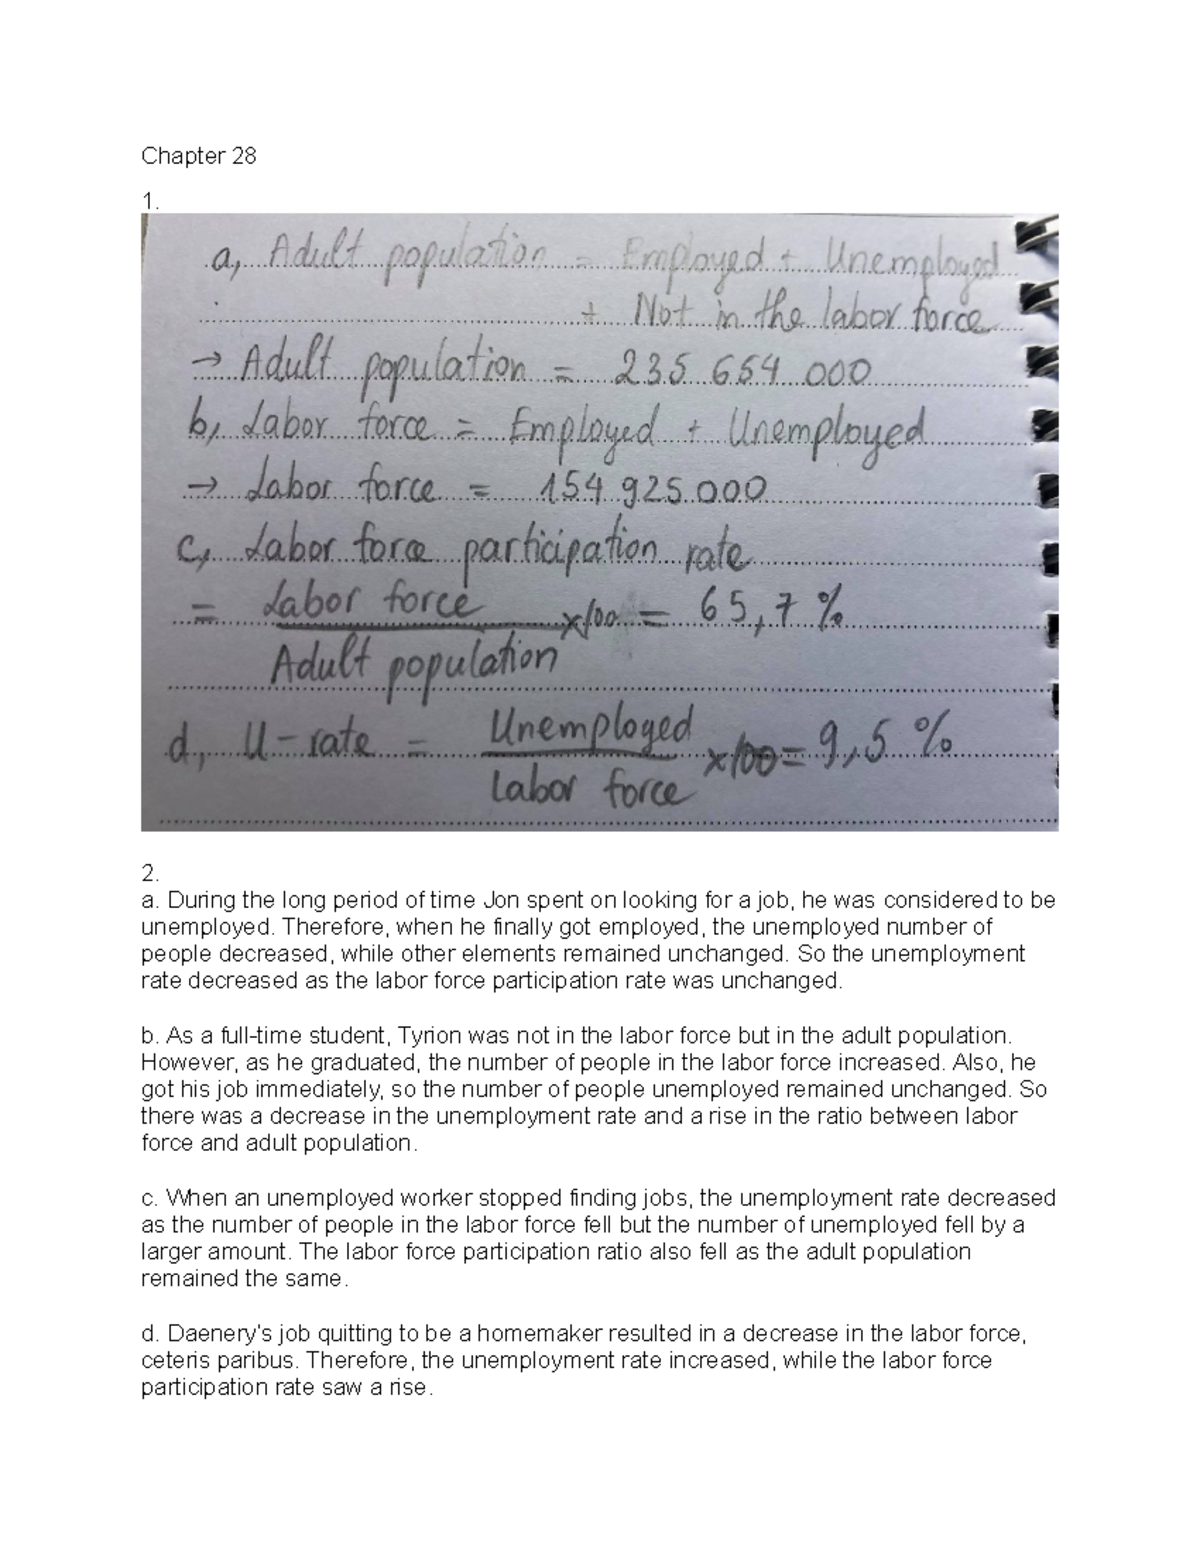 Chapter 28
1.
a, Adult population = Employed + Unemployed
+ Not in the labor force
→ Adult population = 235 654 000
b, Labor force = Employed + Unemployed
→ Labor force = 154 925 000
c, Labor force participation rate
= Labor force / Adult population x100 = 65,7 %
d, U-rate = Unemployed / Labor force x100 = 9,5 %
2.
a. During the long period of time Jon spent on looking for a job, he was considered to be
unemployed. Therefore, when he finally got employed, the unemployed number of
people decreased, while other elements remained unchanged. So the unemployment
rate decreased as the labor force participation rate was unchanged.
b. As a full-time student, Tyrion was not in the labor force but in the adult population.
However, as he graduated, the number of people in the labor force increased. Also, he
got his job immediately, so the number of people unemployed remained unchanged. So
there was a decrease in the unemployment rate and a rise in the ratio between labor
force and adult population.
c. When an unemployed worker stopped finding jobs, the unemployment rate decreased
as the number of people in the labor force fell but the number of unemployed fell by a
larger amount. The labor force participation ratio also fell as the adult population
remained the same.
d. Daenery's job quitting to be a homemaker resulted in a decrease in the labor force,
ceteris paribus. Therefore, the unemployment rate increased, while the labor force
participation rate saw a rise.